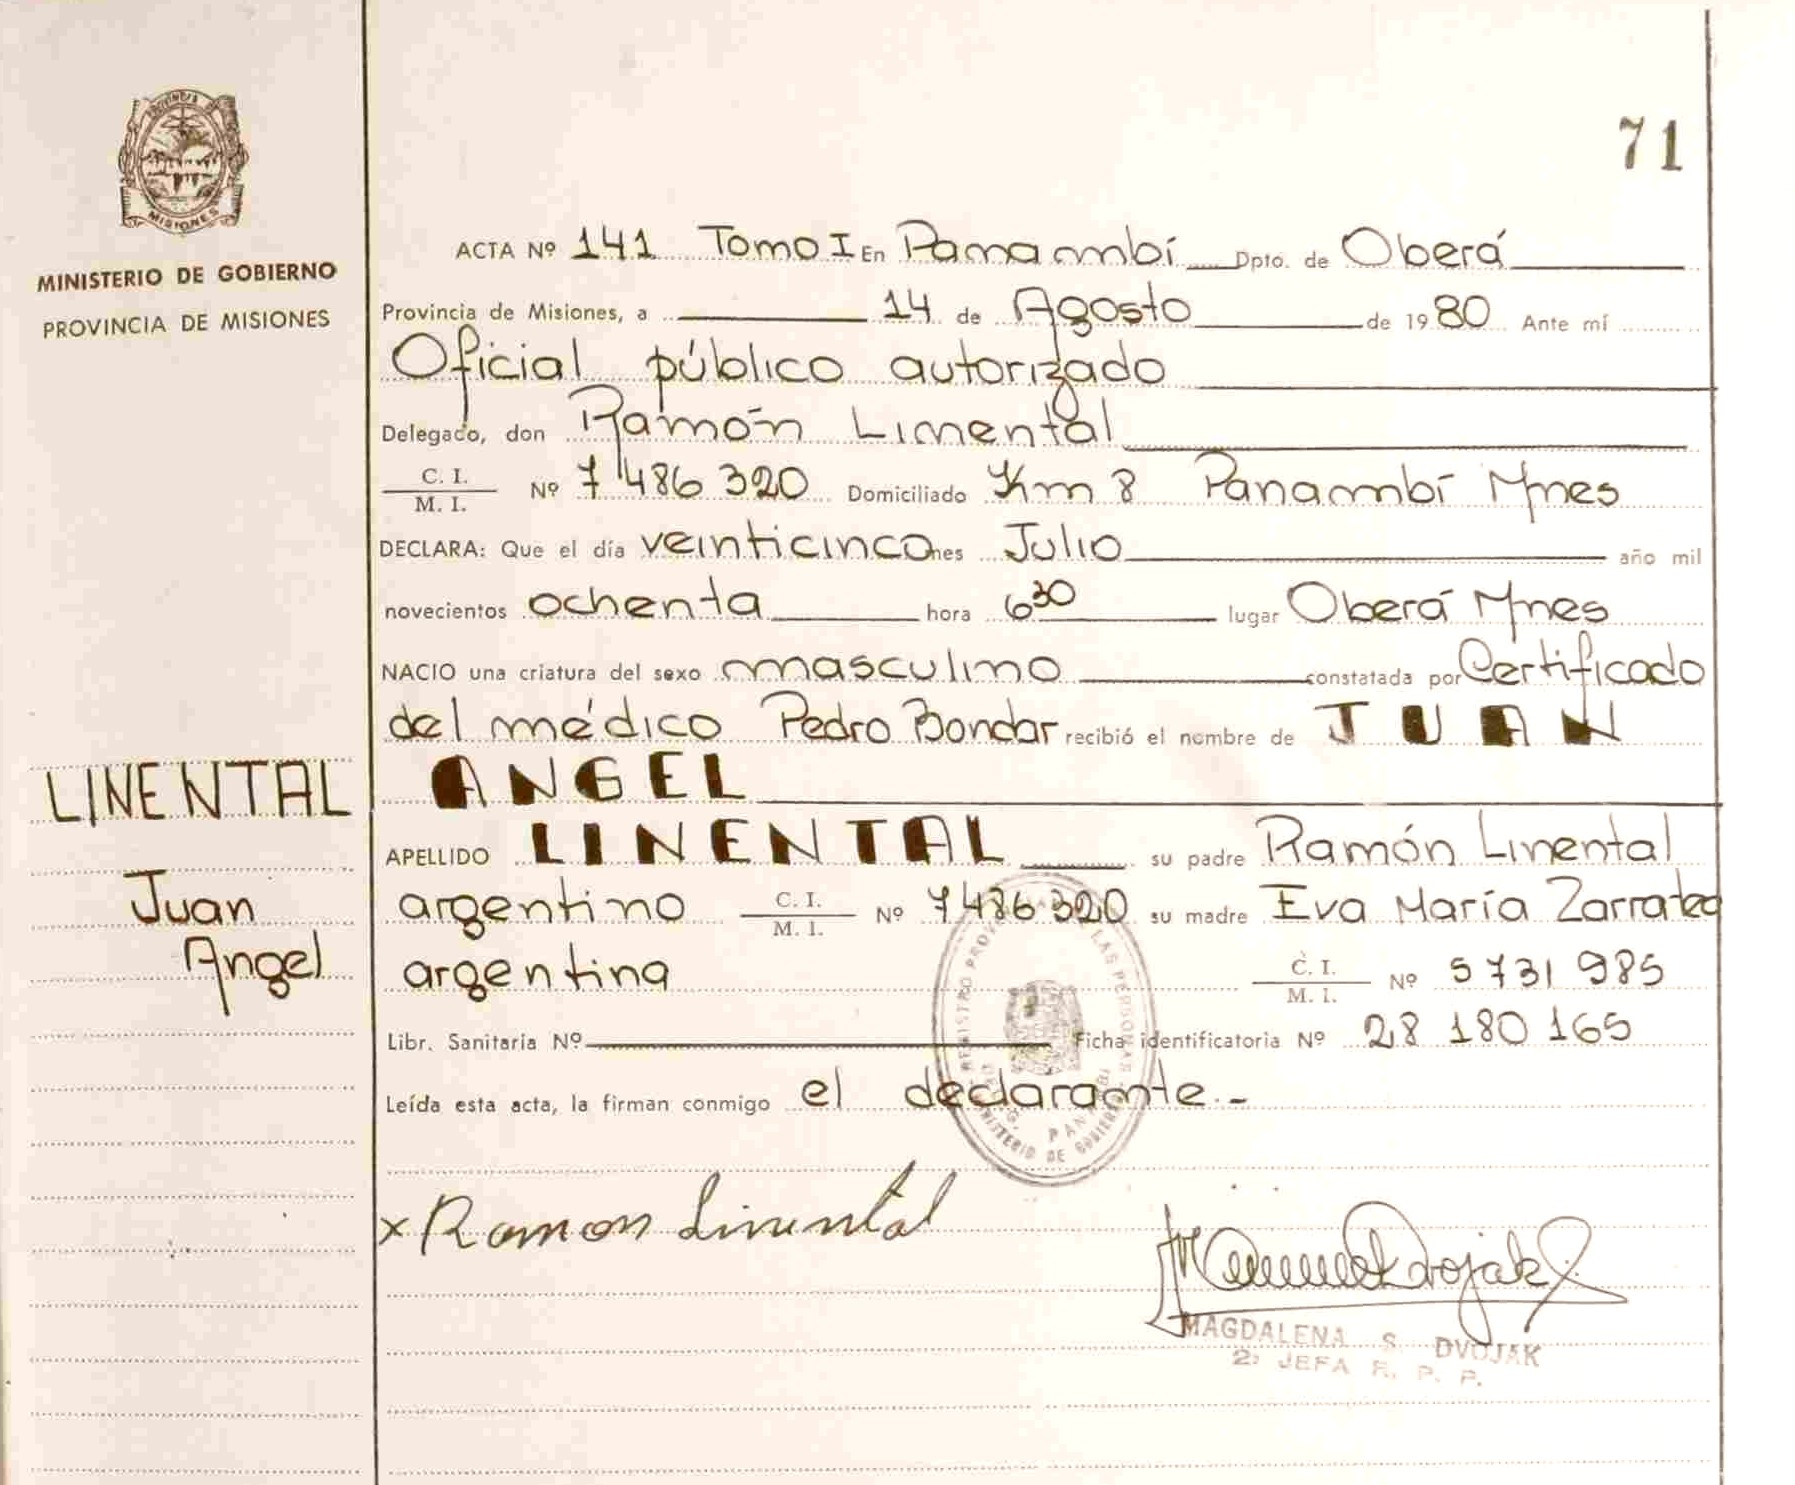 71
MISIONES
MINISTERIO DE GOBIERNO
PROVINCIA DE MISIONES
ACTA Nº 141 Tomo I En Panambí Dpto. de Oberá
Provincia de Misiones, a 14 de Agosto de 1980 Ante mí
Oficial público autorizado
Delegado, don Ramón Linental
C. I.
M. I. Nº 7486320 Domiciliado Km 8 Panambí Mnes
DECLARA: Que el día veinticinco mes Julio año mil
novecientos ochenta hora 6 30 lugar Oberá Mnes
NACIO una criatura del sexo masculino constatada por Certificado
del médico Pedro Bondar recibió el nombre de JUAN
ANGEL
LINENTAL
Juan
Angel
APELLIDO LINENTAL su padre Ramón Linental
argentino C. I.
M. I. Nº 7486320 su madre Eva María
argentina C. I.
M. I. Nº 5731985
Libr. Sanitaria Nº Ficha identificatoria Nº 28 180 165
Leída esta acta, la firman conmigo el declarante.-
x Ramon Linental
MAGDALENA S. DVOJAK
2ª JEFA R. P. P.